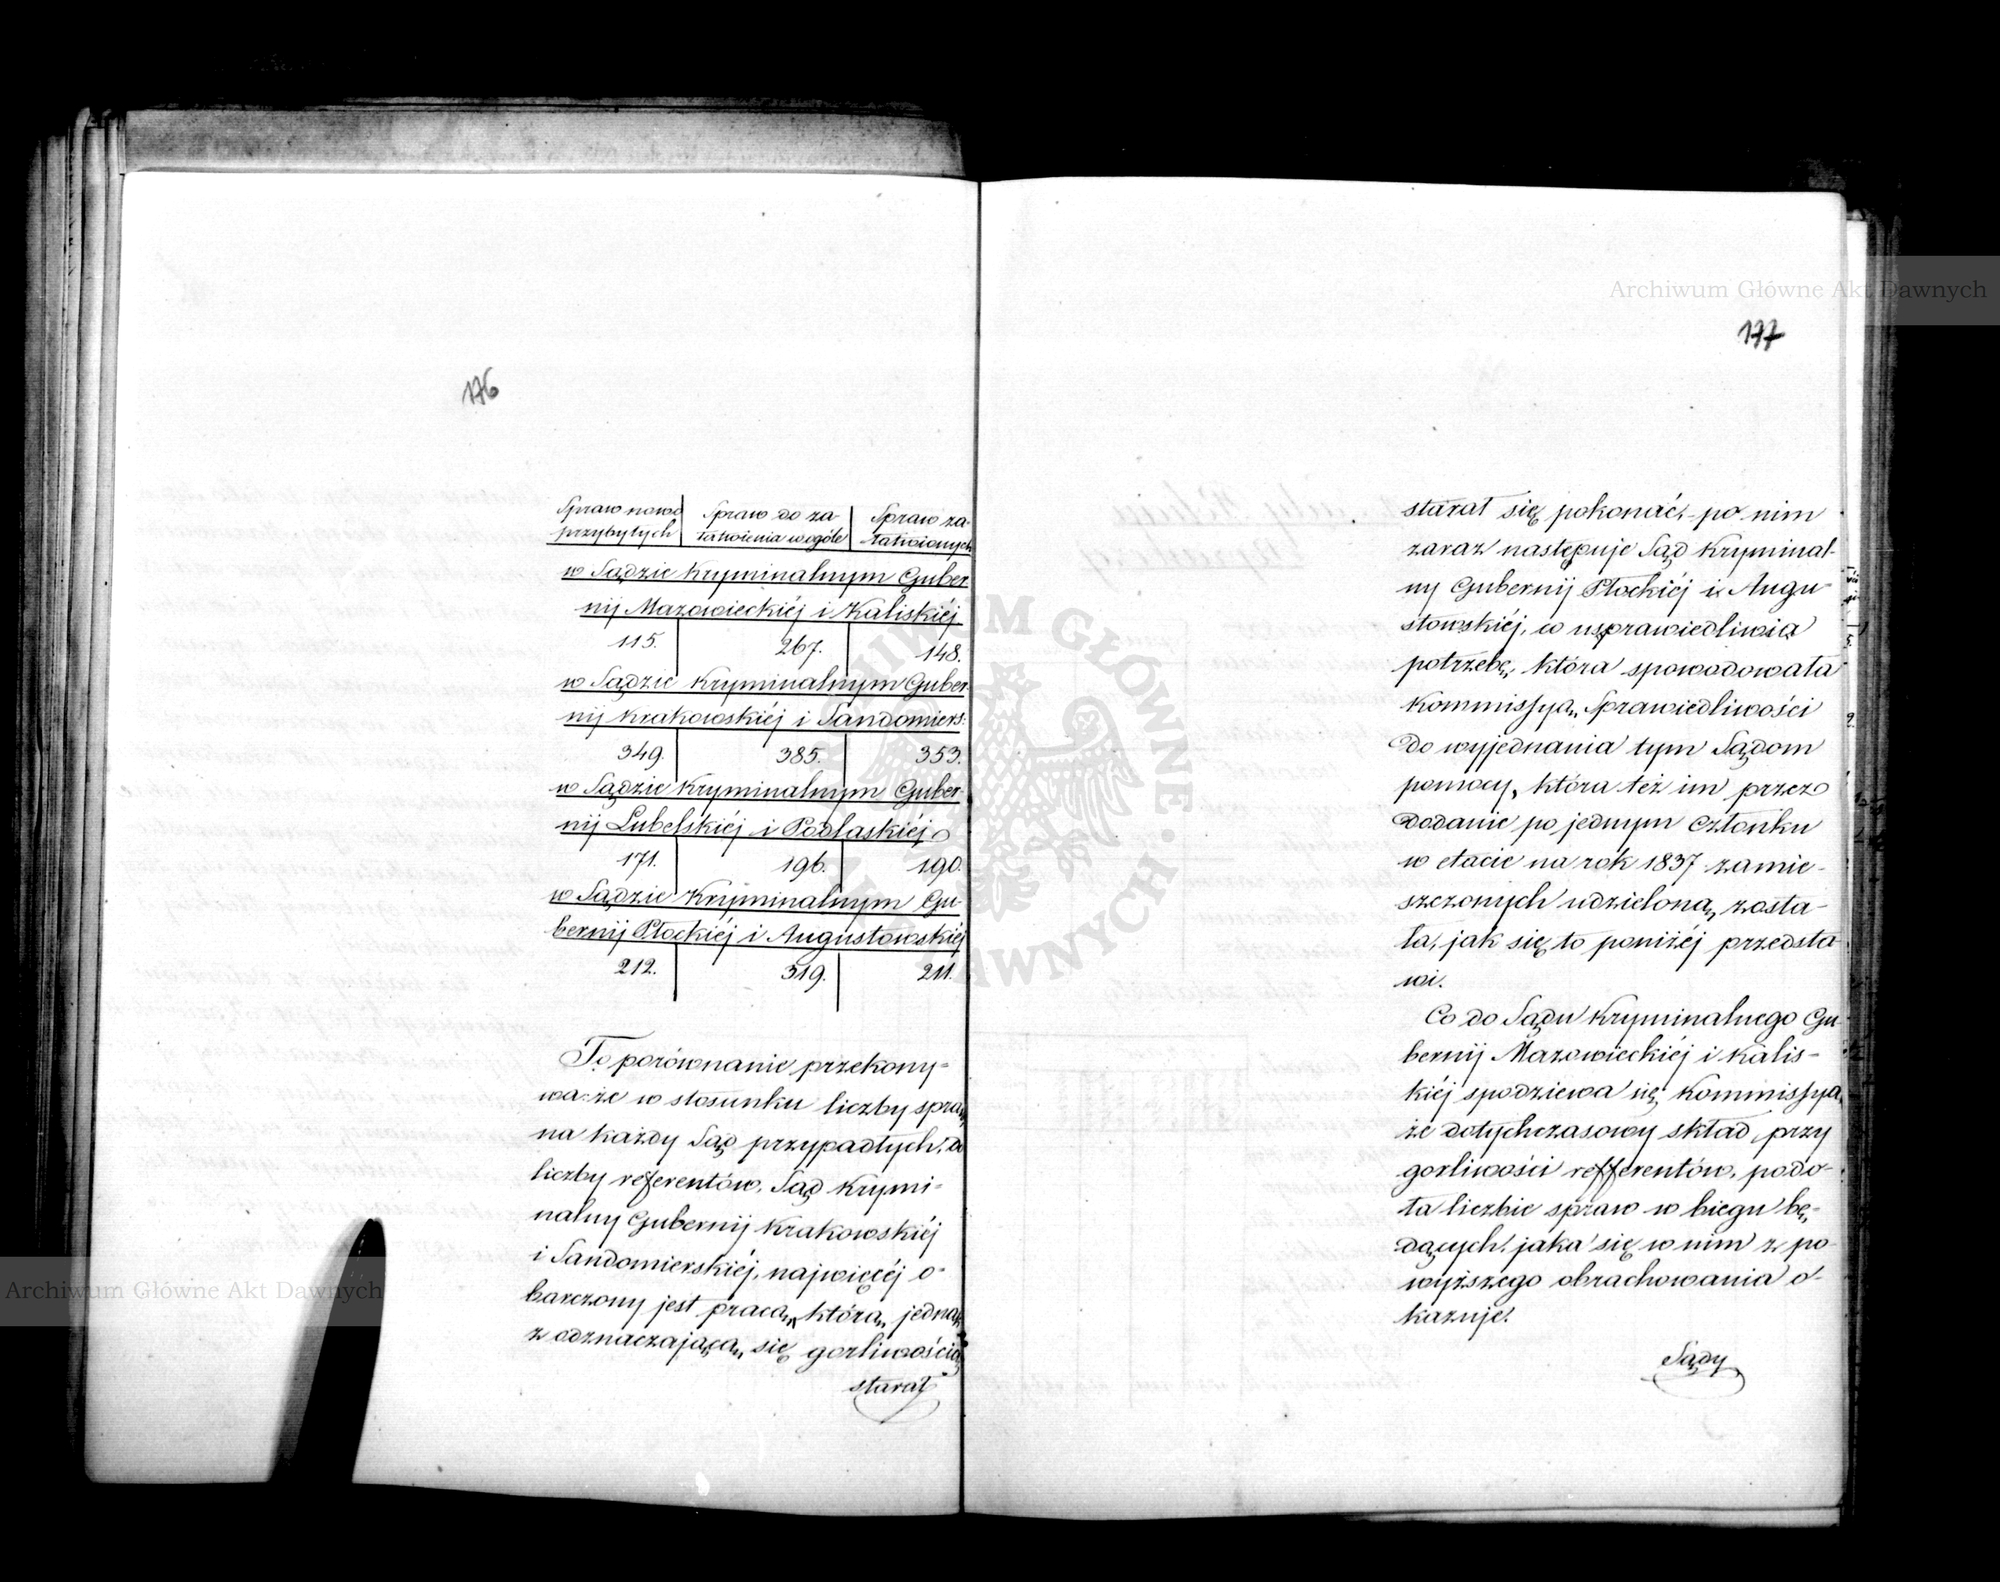 176
Spraw nowo przybyłych | Spraw do załatwienia wogóle | Spraw załatwionych
w Sądzie Kryminalnym Guber-
nij Mazowieckiéj i Kaliskiéj
115. 267. 148.
w Sądzie Kryminalnym Guber-
nij Krakowskiéj i Sandomiers:
349. 385. 353.
w Sądzie Kryminalnym Guber-
nij Lubelskiéj i Podlaskiéj
171. 196. 190.
w Sądzie Kryminalnym Gu-
bernij Płockiéj i Augustowskiéj
212. 319. 211.
To porównanie przekony-
wa: że w stosunku liczby spraw
na każdy Sąd przypadłych, do
liczby referentów, Sąd Krymi-
nalny Gubernij Krakowskiéj
i Sandomierskiéj, najwięcéj o-
barczony jest pracą, którą jednak
z odznaczającą się gorliwością
starał
177
starał się pokonać, po nim
zaraz następuje Sąd Kryminal-
ny Gubernij Płockiéj i Augu-
stowskiéj, co usprawiedliwia
potrzebę, która spowodowała
Kommissyą Sprawiedliwości
do wyjednania tym Sądom
pomocy, która też im przez
dodanie po jednym Członku
w etacie na rok 1837 zamie-
szczonych udzieloną zosta-
ła, jak się to poniżéj przedsta
wi.
Co do Sądu Kryminalnego Gu-
bernij Mazowieckiéj i Kalis-
kiéj spodziewa się Kommissya,
że dotychczasowy skład, przy
gorliwości refferentów, podo-
ła liczbie spraw w biegu bę-
dących, jaka się w nim z po-
wyższego obrachowania o-
kazuje.
Sądy
Archiwum Główne Akt Dawnych
Archiwum Główne Akt Dawnych